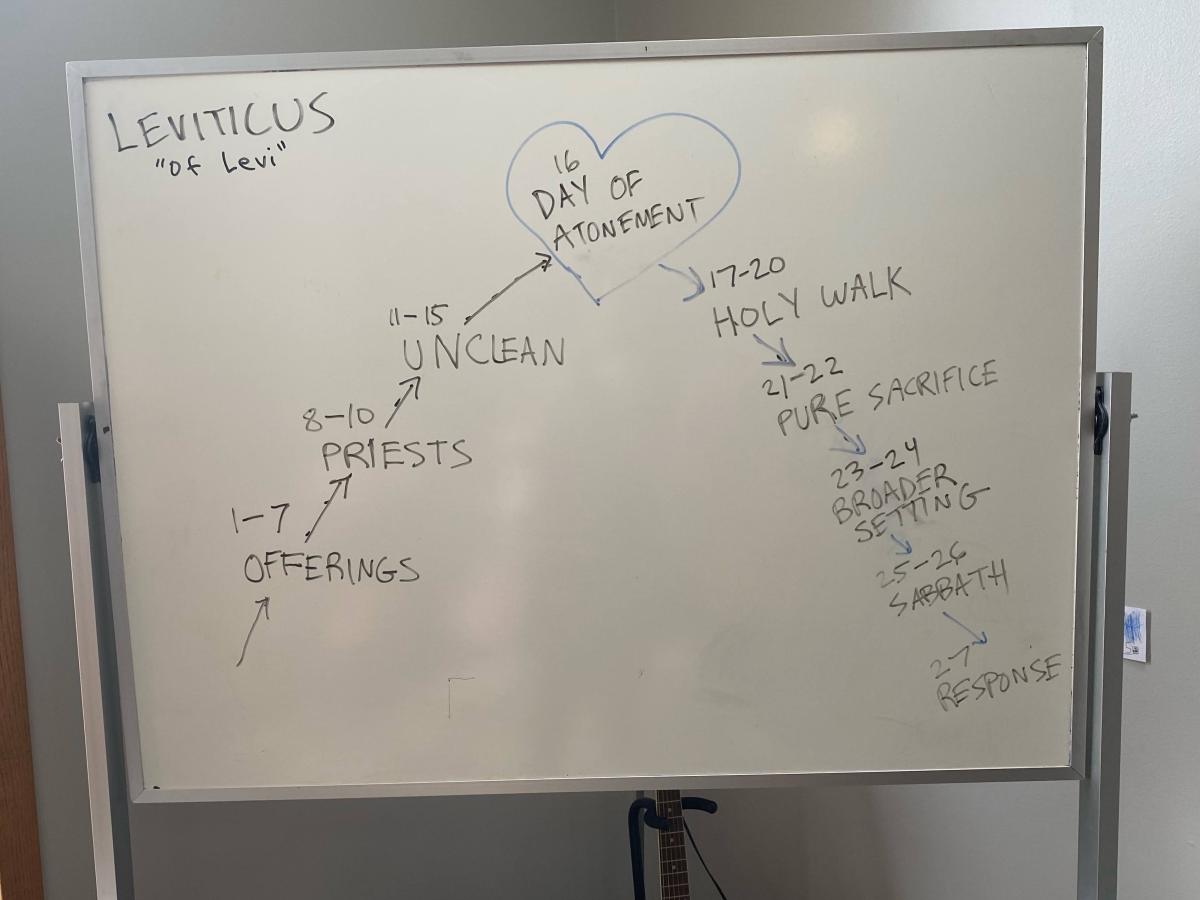 LEVITICUS
"of Levi"
16
DAY OF
ATONEMENT
11-15
UNCLEAN
8-10
PRIESTS
1-7
OFFERINGS
17-20
HOLY WALK
21-22
PURE SACRIFICE
23-24
BROADER
SETTING
25-26
SABBATH
27
RESPONSE